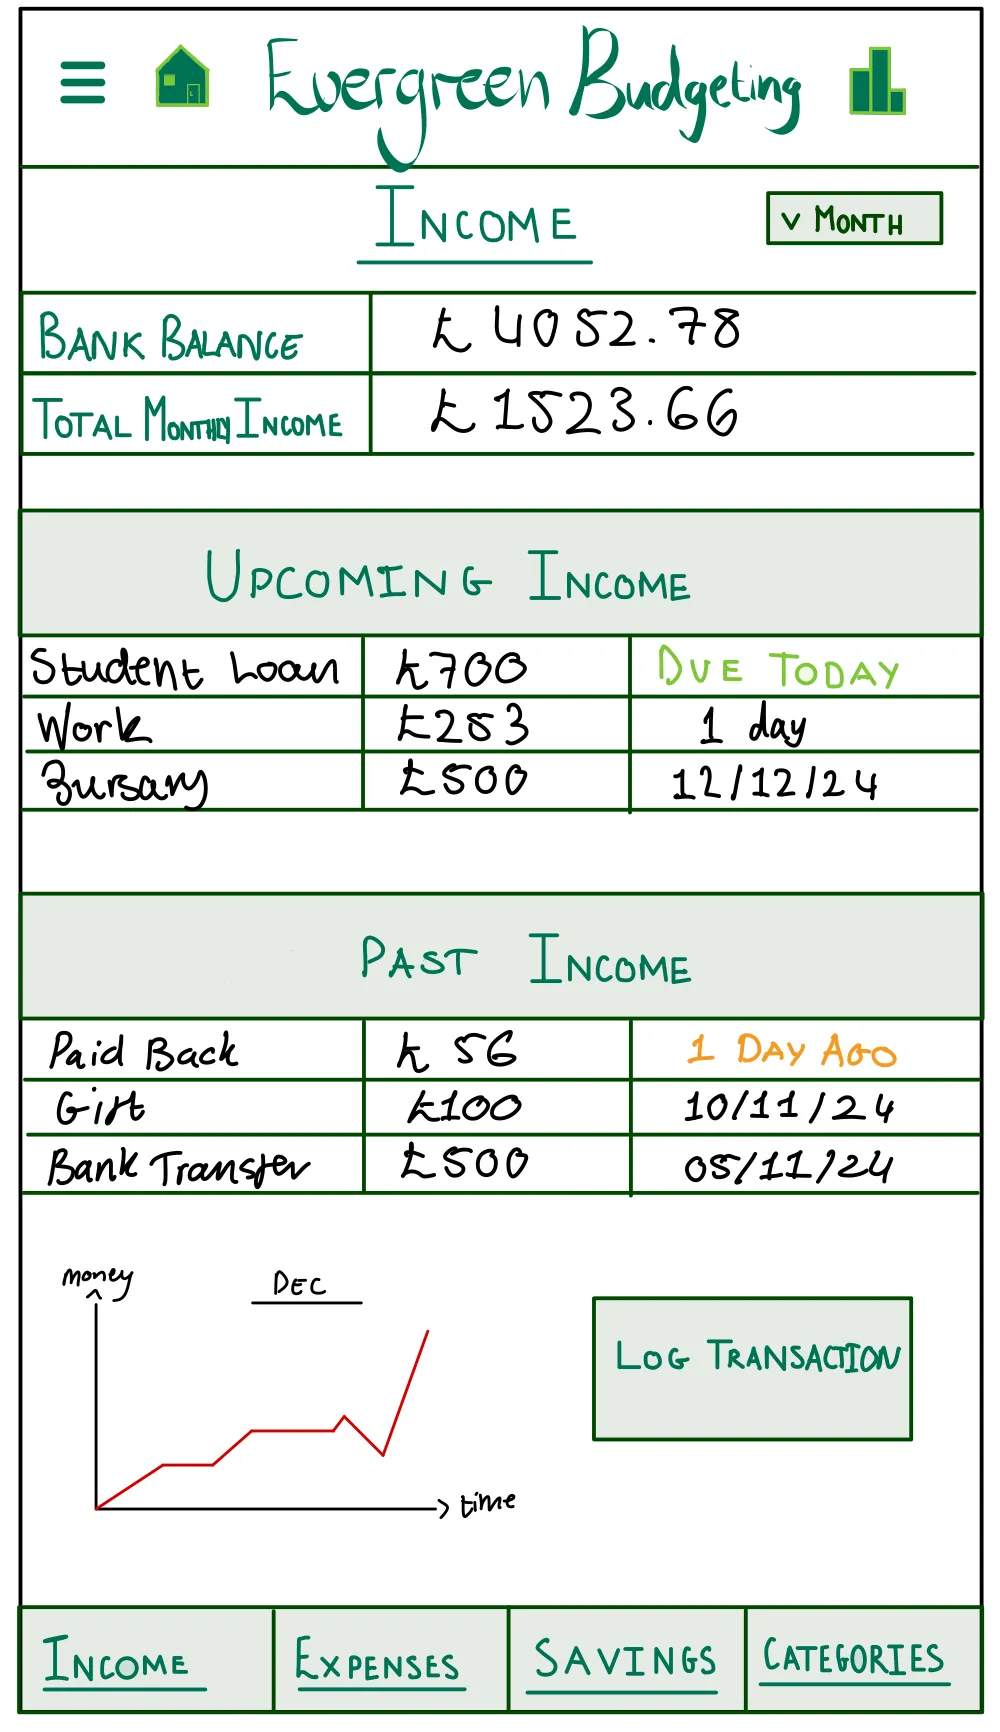 Evergreen Budgeting
INCOME
v MONTH
BANK BALANCE £4052.78
TOTAL MONTHLY INCOME £1523.66
UPCOMING INCOME
Student Loan £700 DUE TODAY
Work £253 1 day
Bursary £500 12/12/24
PAST INCOME
Paid Back £56 1 DAY AGO
Gift £100 10/11/24
Bank Transfer £500 05/11/24
money
DEC
LOG TRANSACTION
time
INCOME EXPENSES SAVINGS CATEGORIES